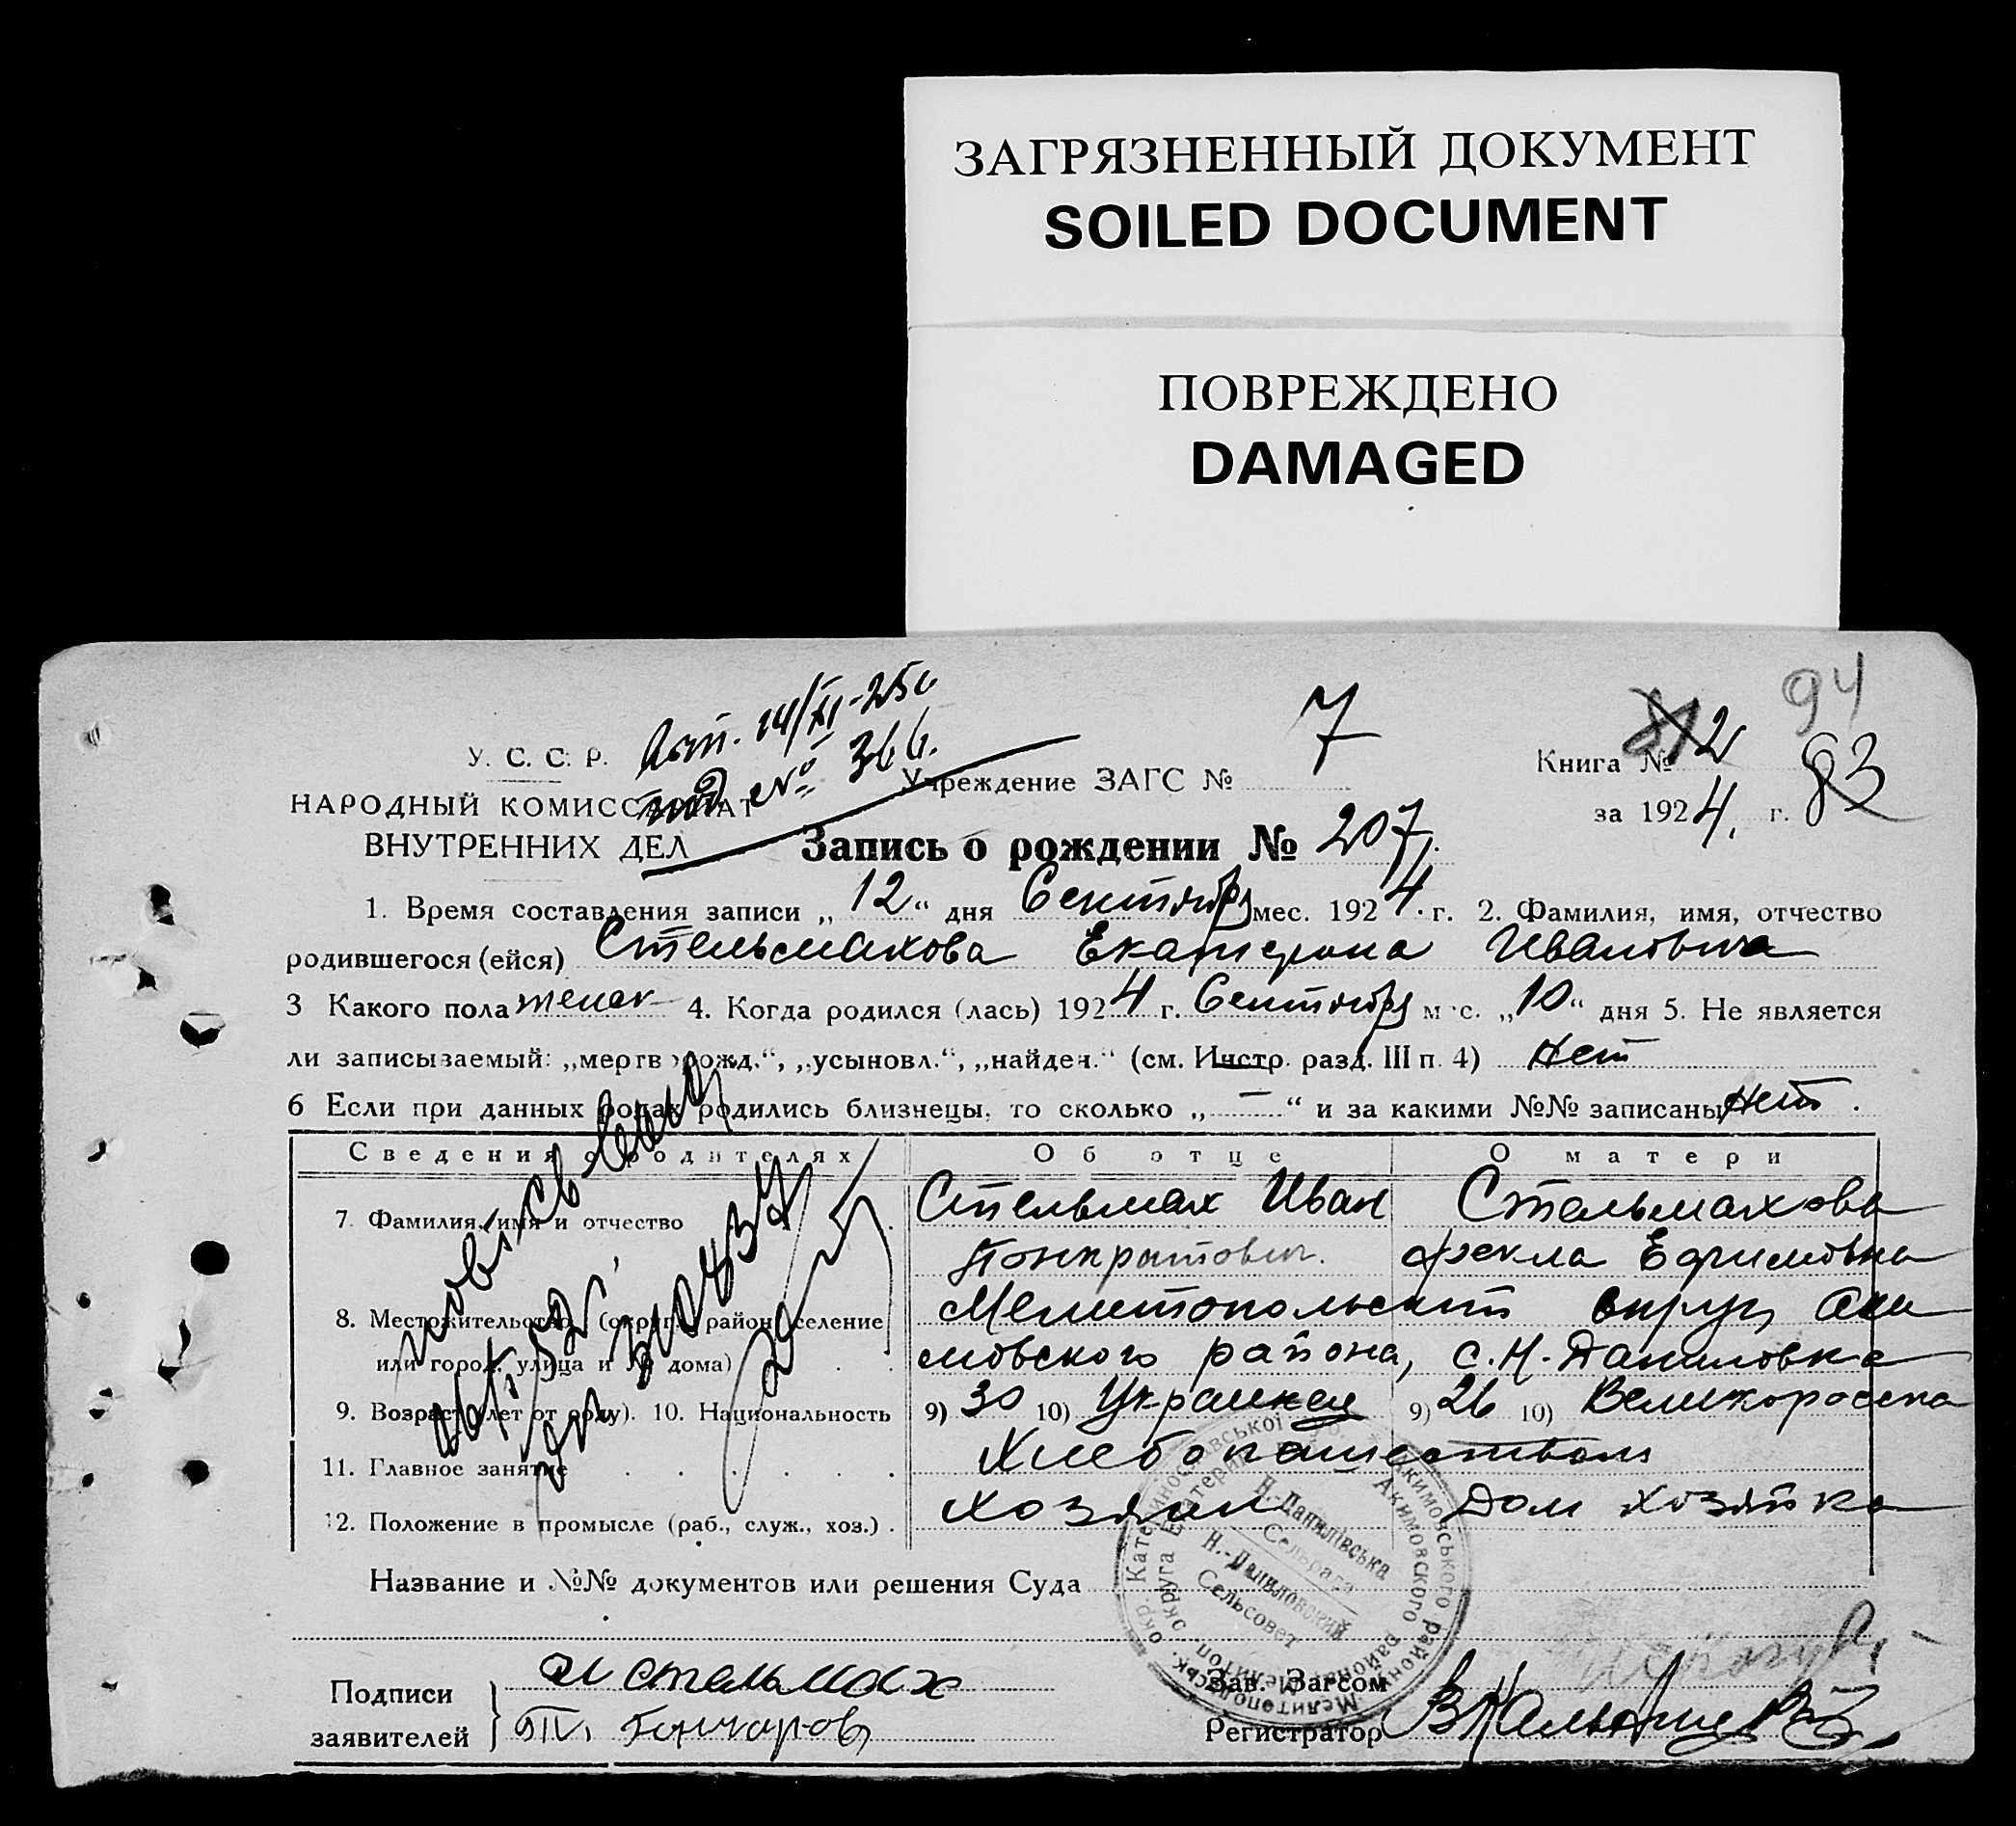 ЗАГРЯЗНЕННЫЙ ДОКУМЕНТ
SOILED DOCUMENT
ПОВРЕЖДЕНО
DAMAGED
94
У. С. С. Р.
НАРОДНЫЙ КОМИССАРИАТ
ВНУТРЕННИХ ДЕЛ
14/XI-25
под № 366.
Учреждение ЗАГС № 7
Книга № 2
за 1924. г. 83
Запись о рождении № 207.
1. Время составления записи „12“ дня Сентября мес. 1924. г. 2. Фамилия, имя, отчество
родившегося (ейся) Стельмахова Екатерина Ивановна
3 Какого пола женск 4. Когда родился (лась) 1924 г. Сентября мес. „10“ дня 5. Не является
ли записываемый: „мертворожд.“, „усыновл.“, „найден.“ (см. Инстр. разд. III п. 4) Нет
6 Если при данных родах родились близнецы, то сколько „—“ и за какими №№ записаны Нет.
Сведения о родителях Об отце О матери
7. Фамилия, имя и отчество Стельмах Иван Стельмахова
Понкратович. Фекла Ефимовна
8. Местожительство (округ, район, селение Мелитопольский округ, Аки
или город, улица и № дома) мовского района, с. Н.-Даниловка
9. Возраст (лет от роду). 10. Национальность 9) 30 10) Украинец 9) 26 10) Великороска
11. Главное занятие Хлебопашеством
12. Положение в промысле (раб., служ., хоз.) Хозяин Дом хозяйка
Н.-Данилівська
Сельрада
Н.-Даниловский
Сельсовет
Название и №№ документов или решения Суда
Подписи
заявителей
И Стельмах
Гончаров
Зав. Загсом
Регистратор